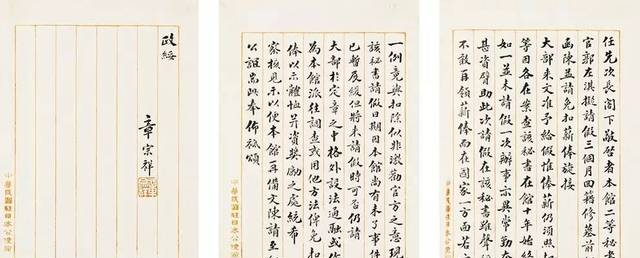 任先次長閣下敬啓者本館二等秘書
官郭左淇擬請假三個月回籍修墓前
函陳並請免扣薪俸旋接
大部來文准予給假惟俸薪仍須照
等因各在案查該秘書在館十年始終
如一並未請假一次辦事亦異常勤
甚資臂助此次請假在該秘書雖聲
不敢再領薪俸而在國家一方面若
中華民國駐日本公使
一例竟與扣除似非激勸官方之意現
該秘書請假日期因本館尚有未了事件
已暫展緩但將來請假時可否仍請
大部於定章之中格外設法通融或作
為本館派往調查或用他方法俾免扣
俸以示體恤并資奬勵之處統希
察核見示以便本館再備文陳請至
以誼耑此奉佈祗頌
中華民國駐日本公使館
政綏
章宗祥
中華民國駐日本公使館